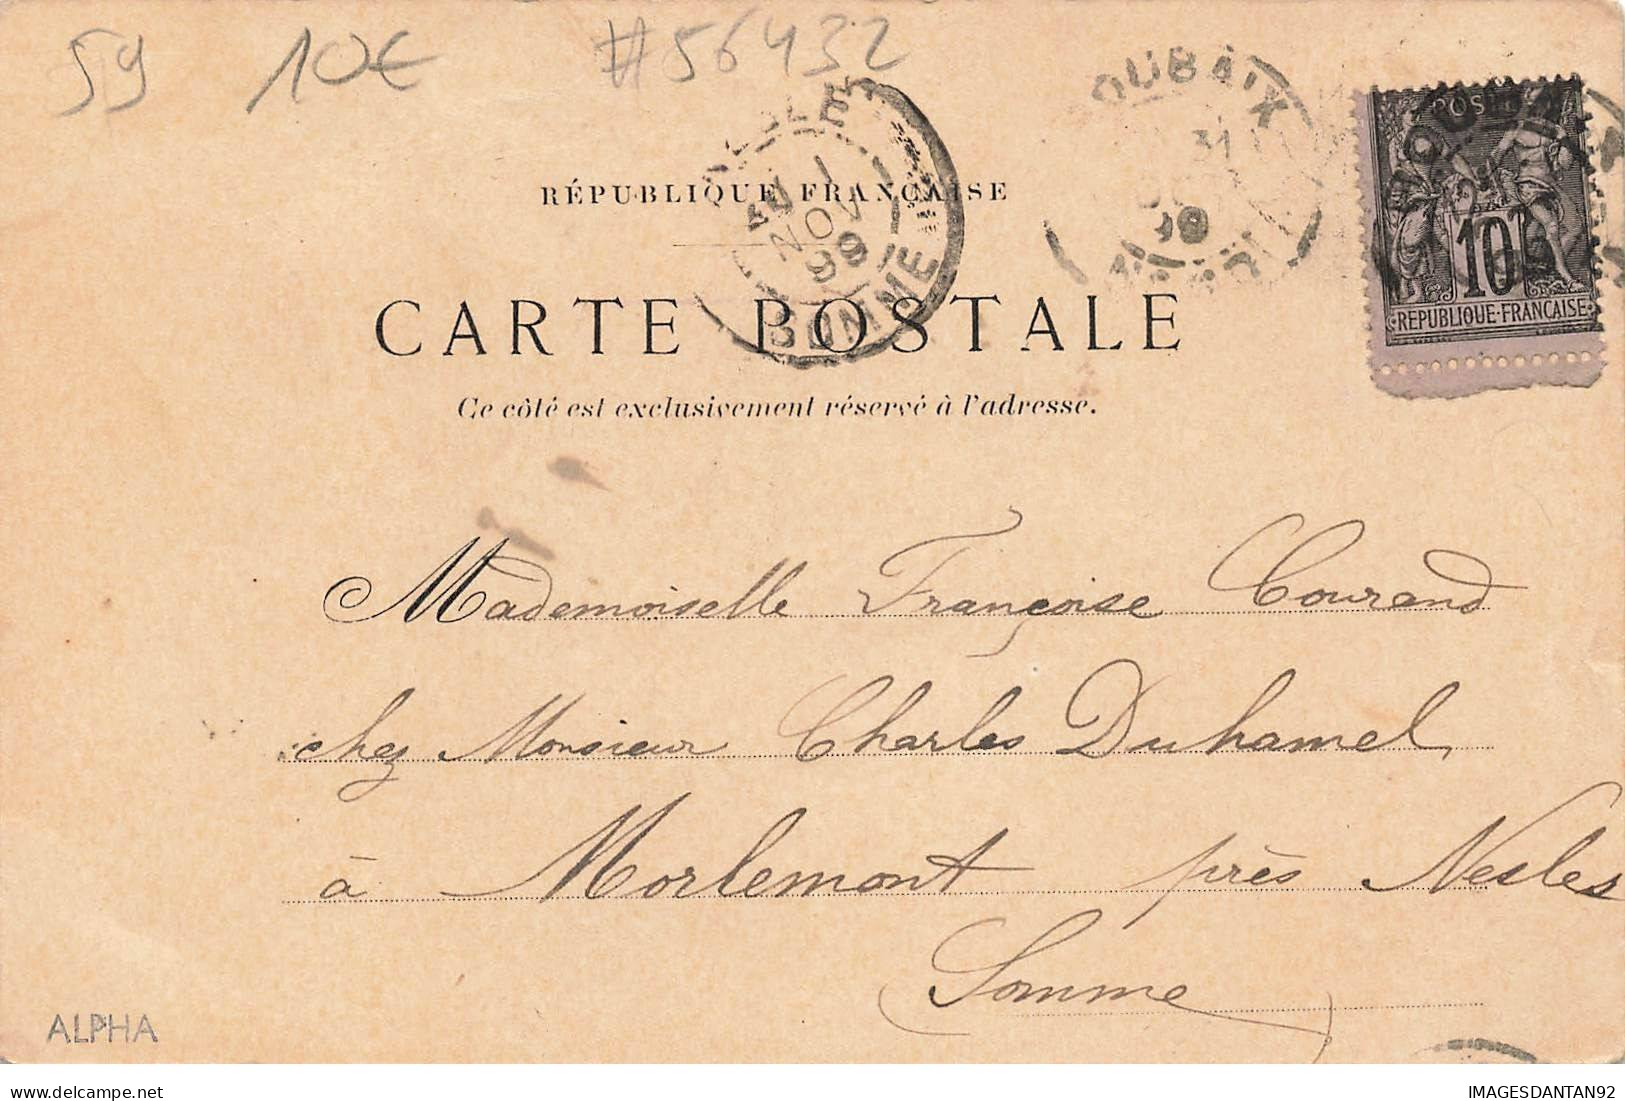 59 10€ #56432
OUBAIX
31
99
POSTES
10
REPUBLIQUE FRANÇAISE
NESLE
1
NOV
99
SOMME
RÉPUBLIQUE FRANÇAISE
CARTE POSTALE
Ce côté est exclusivement réservé à l'adresse.
Mademoiselle Françoise Courand
chez Monsieur Charles Duhamel
à Morlemont près Nesles
Somme
ALPHA
www.delcampe.net IMAGESDANTAN92